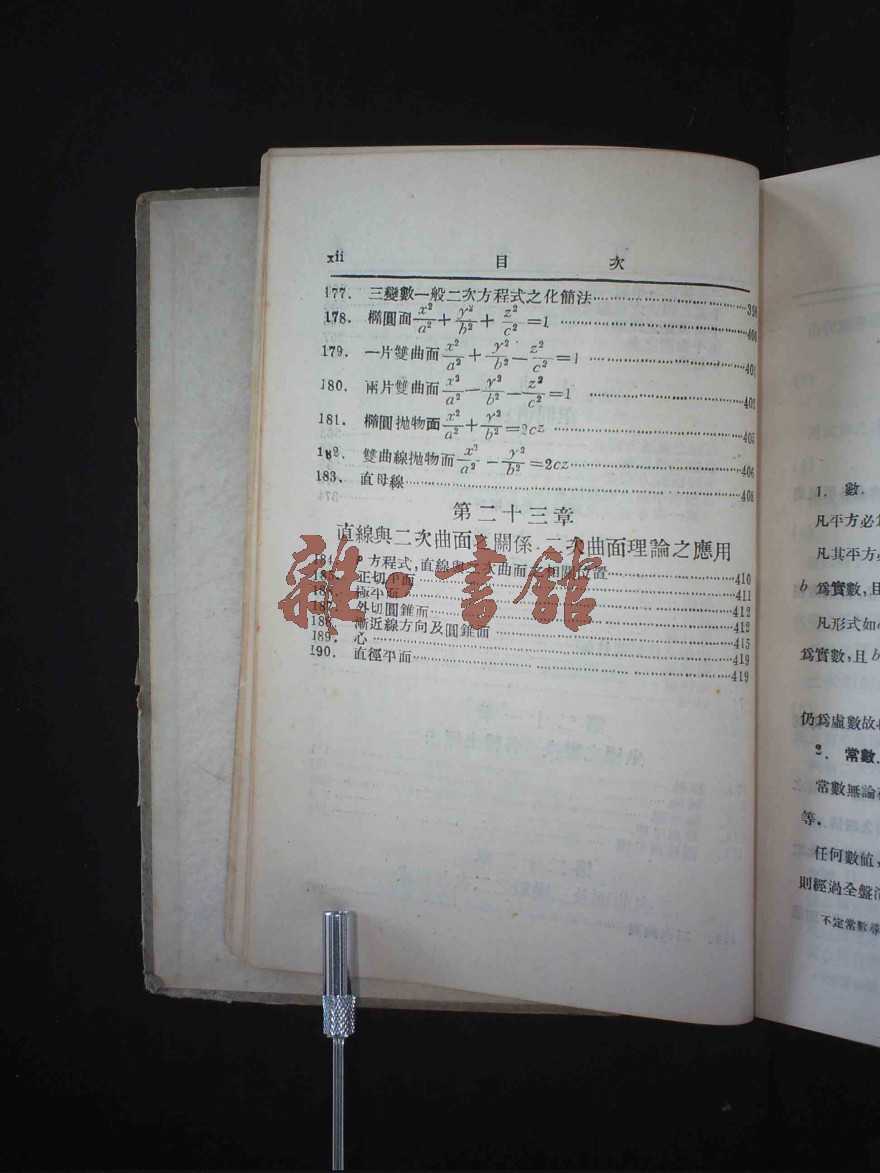 xii 目 次
177. 三變數一般二次方程式之化簡法 398
178. 橢圓面 x²/a² + y²/b² + z²/c² = 1 400
179. 一片雙曲面 x²/a² + y²/b² − z²/c² = 1 401
180. 兩片雙曲面 x²/a² − y²/b² − z²/c² = 1 402
181. 橢圓拋物面 x²/a² + y²/b² = 2cz 405
182. 雙曲線拋物面 x²/a² − y²/b² = 2cz 406
183. 直母線 408
第二十三章
直線與二次曲面之關係．二次曲面理論之應用
184. ρ方程式，直線與二次曲面之相關位置 410
185. 正切平面 411
186. 極平面 412
187. 外切圓錐面 412
188. 漸近線方向及圓錐面 415
189. 心 419
190. 直徑平面 419
雜·書館
1. 數．
凡平方必爲
凡其平方必
b 爲實數，且
凡形式如
爲實數，且 b
仍爲虛數故
2. 常數．
常數無論
等．
任何數値，
則經過全盤
不定常數